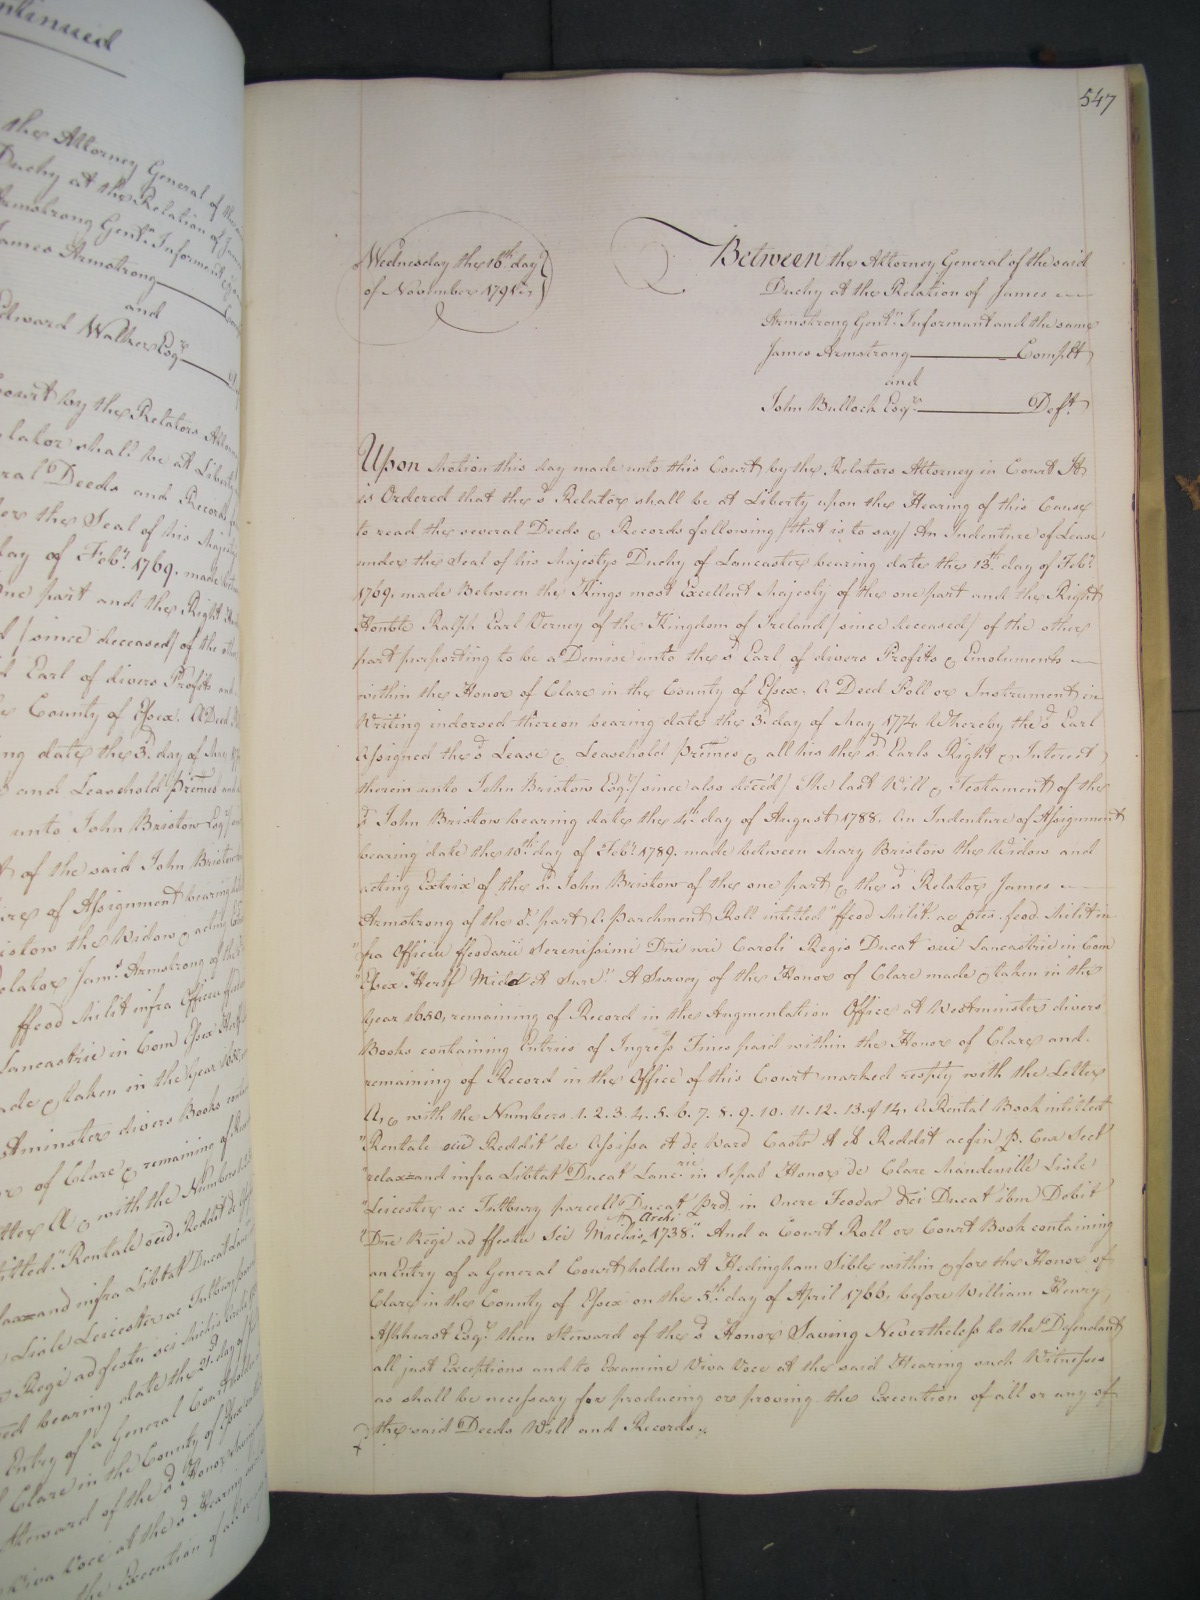 ntinued
the Attorney General of the
Duchy at the Relation of
Armstrong Gentn. Informant
James Armstrong
and
Edward Walker Esqr.
Court by the Relators
lator shall be at Liberty
ral Deeds and Records
der the Seal of his Majesty
day of Feby. 1769. made
one part and the Right
d / since deceased / of the other
d Earl of divers Profits and
e County of Essex. A Deed
ng date the 3d. day of May
and Leasehold Premes
unto John Bristow Esqr.
t of the said John Bristow
ure of Assignment bearing
istow the Widow & acting
elator Jams. Armstrong of the
ffeod Milit infra Officiu
Lancastrie in Com Essex
ade & taken in the Year 1650
stminster divers Books
or of Clare & remaining of
tter A & with the Numbers
titled "Rentale
laxand infra Libtat Ducat
Lisle Leicester ac Tutbury
Regi ad festu sci
ed bearing date the 2d. day of
Entry of a General Court
Clare in the County of Essex
Steward of the sd. Honor
Viva Voce at the sd. Hearing
the Execution of all or
547
Wednesday the 16th. day
of November 1791.
Between the Attorney General of the said
Duchy at the Relation of James
Armstrong Gentn. Informant and the same
James Armstrong Complt
and
John Bullock Esqr. Deft.
Upon Motion this day made unto this Court by the Relators Attorney in Court It
is Ordered that the sd. Relator shall be at Liberty upon the Hearing of this Cause
to read the several Deeds & Records following / that is to say / An Indenture of Lease
under the Seal of his Majestys Duchy of Lancaster bearing date the 13th. day of Feby.
1769. made Between the Kings most Excellent Majesty of the one part and the Right
Honble Ralph Earl Verney of the Kingdom of Ireland / since deceased / of the other
part purporting to be a Demise unto the sd. Earl of divers Profits & Emoluments
within the Honor of Clare in the County of Essex. A Deed Poll or Instrument in
Writing indorsed thereon bearing date the 3d. day of May 1774. Whereby the sd. Earl
Assigned the sd. Lease & Leasehold Premes & all his the sd. Earls Right & Interest
therein unto John Bristow Esqr. / since also deced / The last Will & Testament of the
sd. John Bristow bearing date the 4th. day of August 1788. An Indenture of Assignment
bearing date the 10th. day of Feby. 1789. made between Mary Bristow the Widow and
acting Extrix of the sd. John Bristow of the one part & the sd. Relator James
Armstrong of the or. part A Parchment Roll intitled "ffeod Milit ac ptes. feod Milit in
"fra Officiu ffeodarii Serenissimi Dni nri Caroli Regis Ducat sui Lancastrie in Com
"Essex Hertf Midd et Surr" A Survey of the Honor of Clare made & taken in the
Year 1650, remaining of Record in the Augmentation Office at Westminster divers
Books containing Entries of Ingress Fines paid within the Honor of Clare and
remaining of Record in the Office of this Court marked resply with the Letter
A, & with the Numbers 1. 2. 3. 4. 5. 6. 7. 8. 9. 10. 11. 12. 13. & 14. A Rental Book intitled
"Rentale oud Reddit de Assissa et de Ward Castr et et Reddit ac fin p. Cur Sect
"relaxand infra Libtat Ducat Lancrie. in sepal Honor de Clare Mandeville Lisle
"Leicester ac Tutbury parcell Ducat prd. in Onere Feodar dci Ducat ibm Debit
"Dno Regi ad ffestu Sci Michis Archi 1738." And a Court Roll or Court Book containing
an Entry of a General Court holden at Hedingham Sible within & for the Honor of
Clare in the County of Essex on the 5th. day of April 1766, before William Henry
Ashhurst Esqr. then Steward of the sd. Honor Saving Nevertheless to the Defendant
all just Exceptions and to Examine Viva Voce at the said Hearing such Witnesses
as shall be necessary for producing or proving the Execution of all or any of
the said Deeds Will and Records.